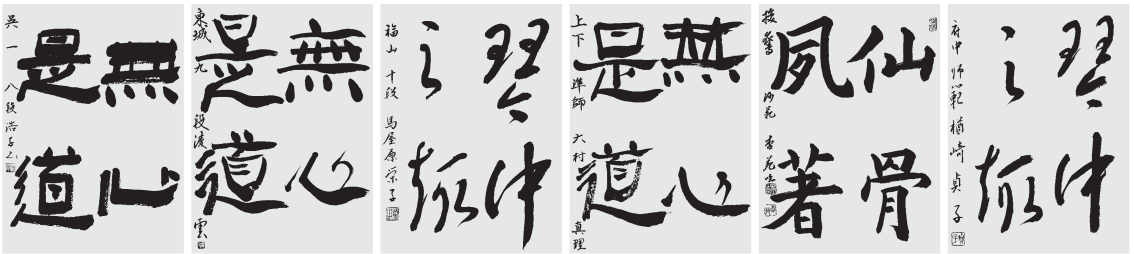 無心
是道
呉一 八段 浩子
無心
是道
東城 九段 凌雲
琴中
之趣
福山 十段 馬屋原栄子
無心
是道
上下 準師 大村真理
仙骨
夙著
琴中
之趣
府中 師範 楢崎貞子